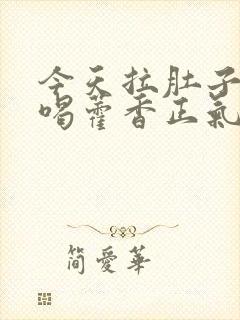 今天拉肚子
喝藿香正氣
簡愛華